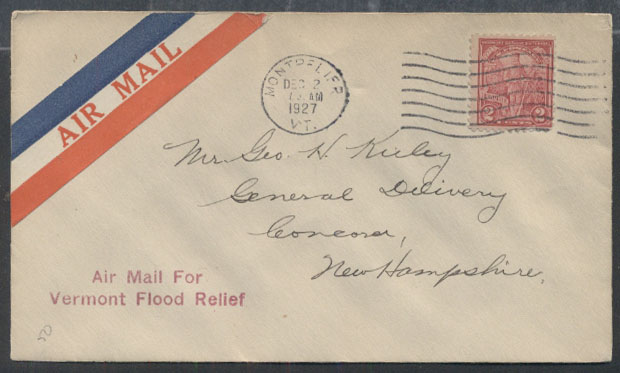 AIR MAIL
MONTPELIER
DEC 2
AM
1927
VT.
2 2
Mr. Geo. H. Kieley
General Delivery
Concord,
New Hampshire.
Air Mail For
Vermont Flood Relief
50